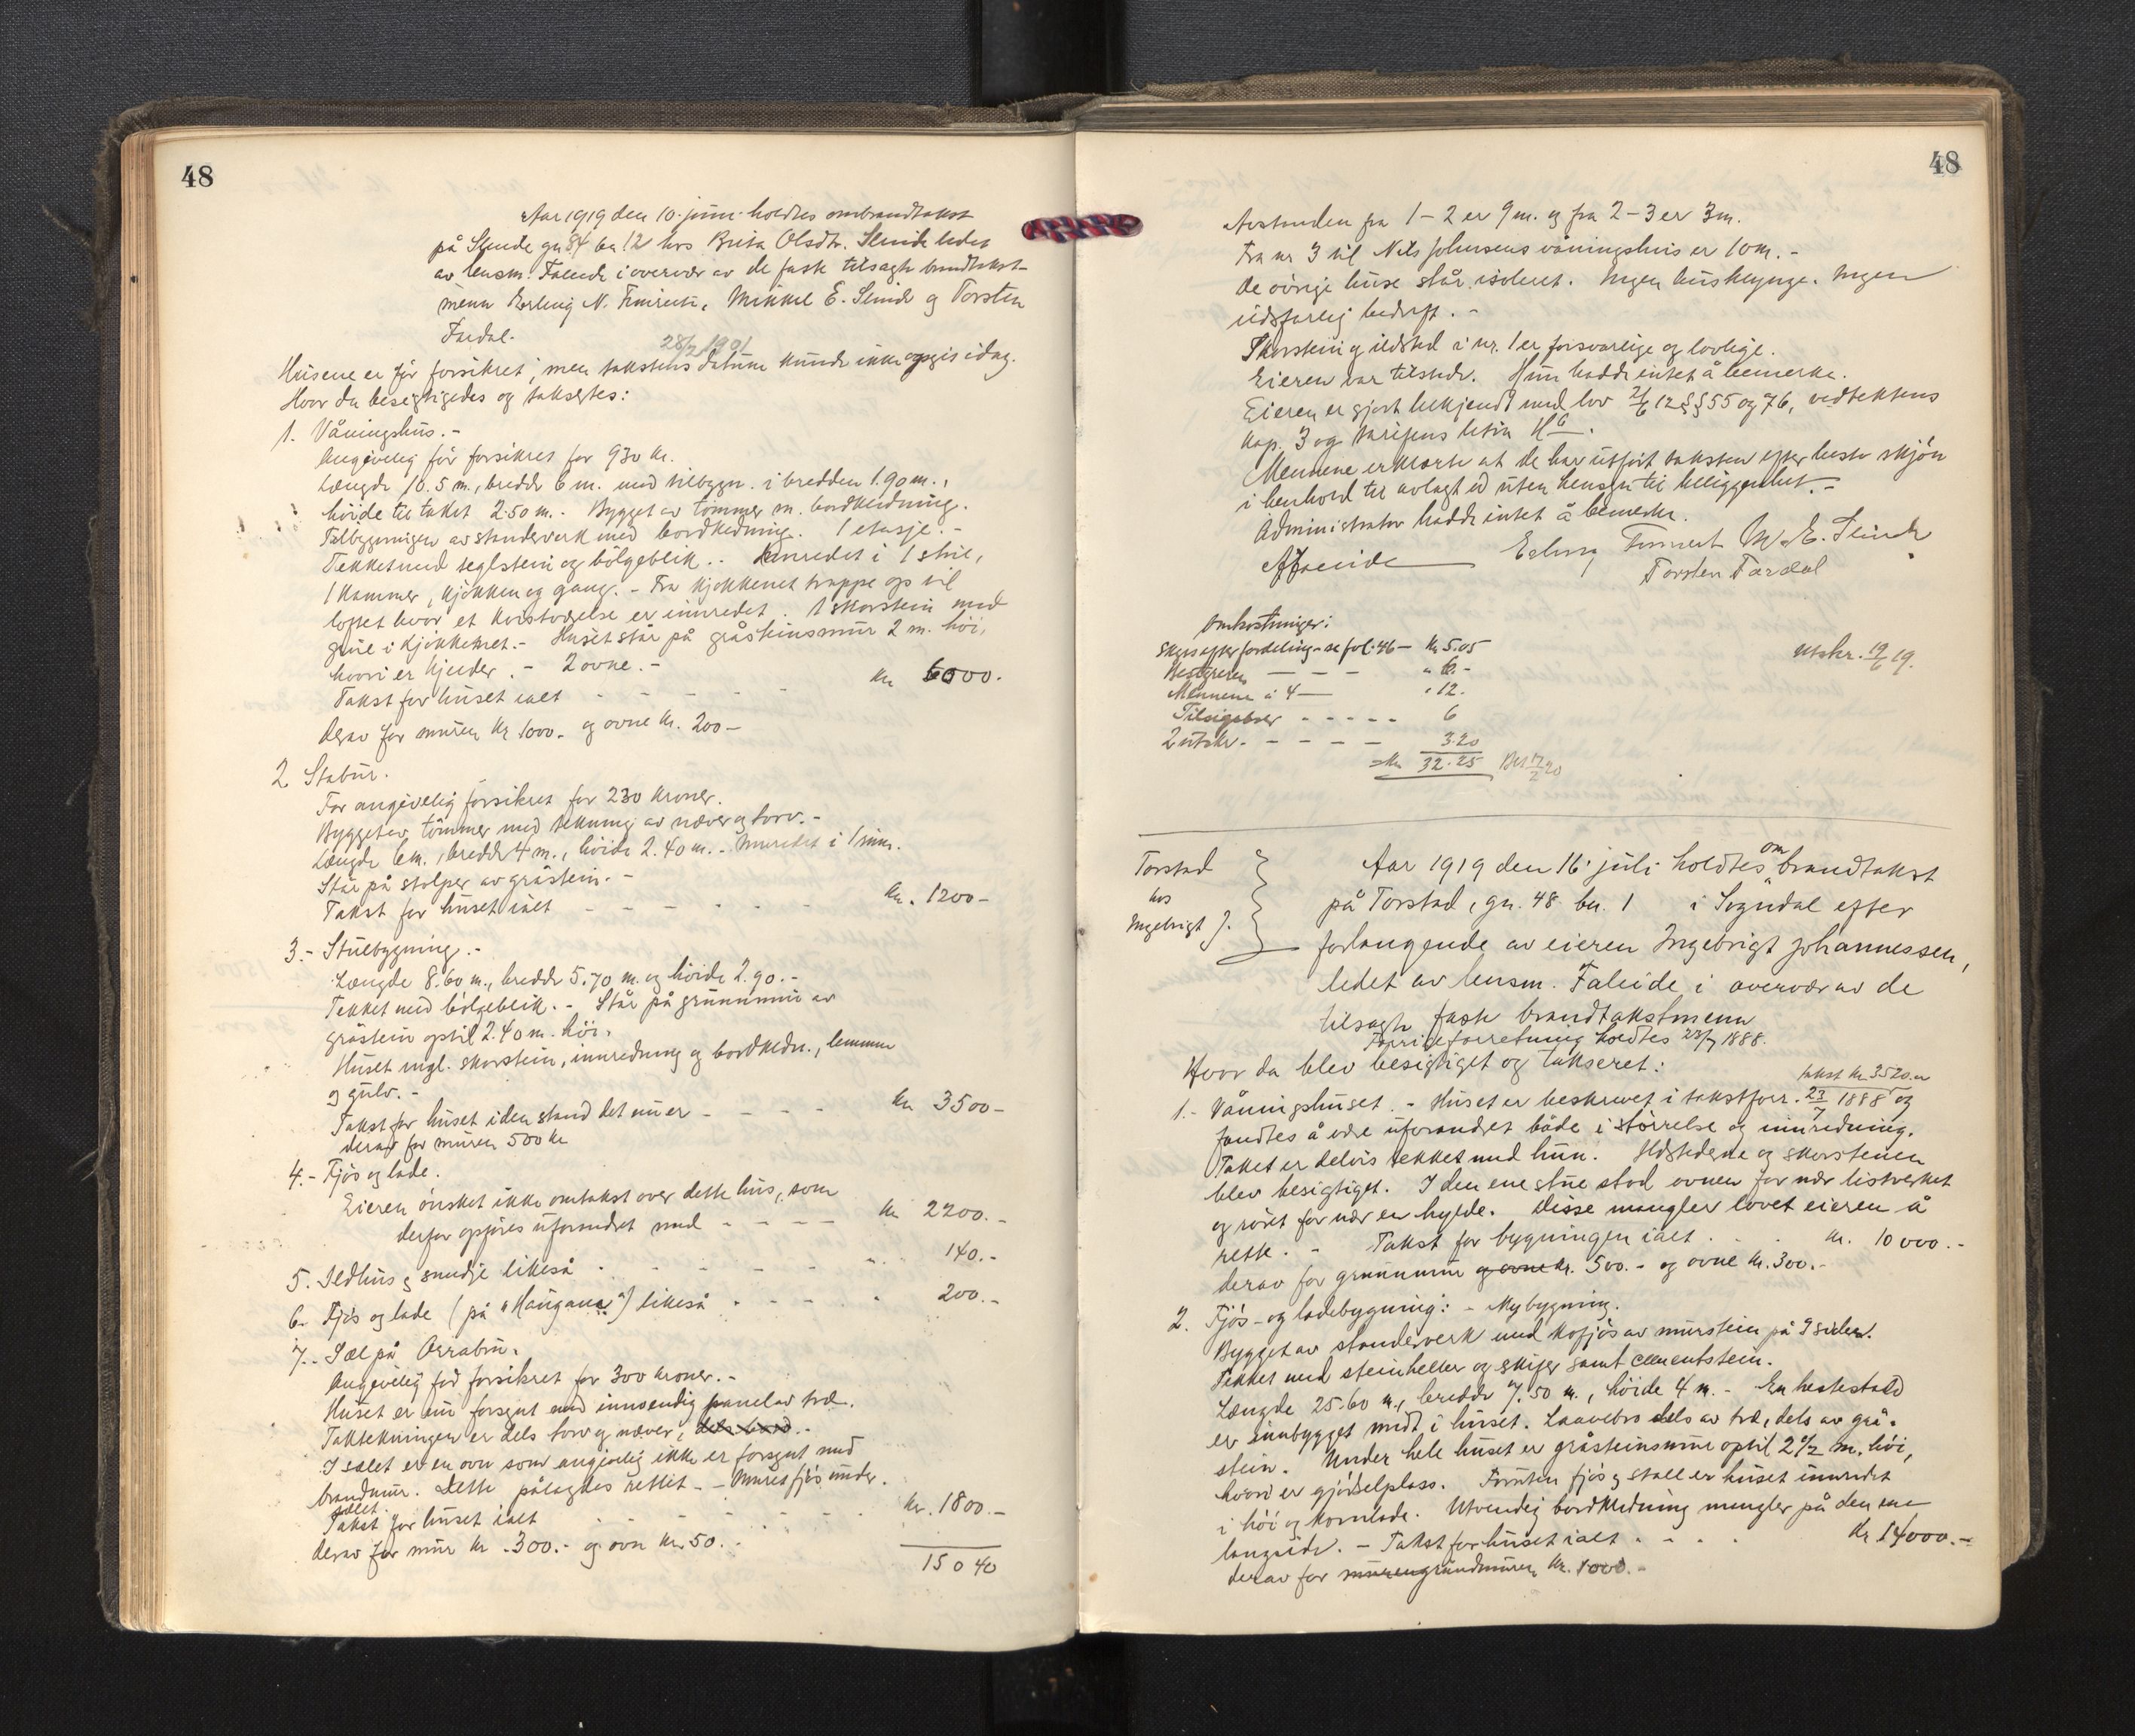 48
Aar 1919 den 10. juni holdtes ombrandtakst
på Slinde gn 84 bn 12 hos Brita Olsdtr. Slinde ledet
av lensm. Faleide i overvær av de faste tilsagte brandtakst-
menn Erling N. Fimreite, Mikkel E. Slinde og Torsten
Fardal.
28/2 1901
Husene er før forsikret, men takstens datum kunde ikke opgis idag.
Hvor da besigtigedes og takseртes:
1. Våningshus.-
Angivelig før forsikret for 930 kr.
Længde 10.5 m., bredde 6 m. med tilbygn. i bredden 1.90 m.,
høide til taket 2.50 m.- Bygget av tømmer m. bordklædning.
Tilbygningen av standerverk med bordkledning. 1 etasje.-
Tekket med teglstein og bölgeblik.. Innredet i 1 stue,
1 kammer, kjökken og gang.- Fra kjökkenet trappe op til
loftet hvor et kvistværelse er innredet. 1 skorstein med
grue i kjökkenet.- Huset står på gråsteinsmur 2 m. høi,
hvori er kjelder.- 2 ovne.-
Takst for huset ialt - - - - - kr 6000.
derav for muren kr 1000.- og ovne kr. 200-
2. Stabur.
Før angivelig forsikret for 230 kroner.
Bygget av tømmer med tekning av næver og torv.-
Længde 6 m., bredde 4 m., høide 2.40 m.- Innredet i 1 rum.
Står på stolper av gråstein.-
Takst for huset ialt - - - - - kr. 1200-
3.- Stuebygning.-
Længde 8.60 m., bredde 5.70 m. og høide 2.90.-
Tekket med bölgeblik.- Står på grunnmur av
gråstein optil 2.40 m. høi.
Huset mgl. skorstein, innredning og bordkledn., lemmer
og gulv.-
Takst for huset i den stand det nu er - - - - kr 3500-
derav for muren 500 kr
4.- Fjøs og lade.
Eieren ønsket ikke omtakst over dette hus, som
derfor opføres uforandret med - - - - kr 2200.-
5. Ildhus og smidje likeså - - - - 140.-
6. Fjøs og lade (på "Haugane") likeså - - - 200.-
7.- Sæl på Orrabu.
Angivelig før forsikret for 300 kroner.-
Huset er nu forsynt med innvendig panel av træ.
Taktekningen er dels torv og næver, dels bord.-
I sælet er en ovn som angivelig ikke er forsynt med
brandmur. Dette pålagdes rettet.- - Muret fjøs under
sælet.
Takst for huset ialt - - - - - - kr. 1800.-
derav for mur kr. 300.- og ovn kr. 50.-
15040
48
Avstanden fra 1 - 2 er 9 m. og fra 2 - 3 er 3 m.
Fra nr 3 til Nils Johnsens våningshus er 10 m.-
De øvrige huse står isoleret. Ingen husklynge. Ingen
ildsfarlig bedrift.-
Skorstein og ildsted i nr. 1 er forsvarlige og lovlige.
Eieren var tilstede. Hun hadde intet å bemerke.
Eieren er gjort bekjendt med lov 21/6 12 §§ 55 og 76, vedtektens
kap. 3 og tarifens litra H 6.
Mennene erklærte at de har utført taksten efter beste skjön
i henhold til avlagt ed uten hensyn til beliggenhet.-
Administrator hadde intet å bemerke.
A Faleide Erling Fimreit M. E. Slinde
Torsten Fardal
Omkostninger:
Skyss efter fordeling - se fol. 46 - kr 5.05
Bestyreren - - - " 6.-
Mennene à 4 - " 12.
Tilsigelser - - - - - 6
2 utskr. - - - - - 3.20
= kr 32.25 Bet 17/2 20
Utskr. 19/6 19.
Torstad
hos
Ingebrigt J.
Aar 1919 den 16. juli holdtes om brandtakst
på Torstad, gn. 48 bn. 1 i Sogndal efter
forlangende av eieren Ingebrigt Johannessen,
ledet av lensm. Faleide i overvær av de
tilsagte faste brandtakstmenn
Forrige forretning holdtes 23/7 1888.
Hvor da blev besigtiget og takseret:
takst kr. 3520.-
1.- Våningshuset.- Huset er beskrevet i takstforr. 23/7 1888 og
fandtes å være uforandret både i størrelse og innredning.
Taket er delvis tekket med hun. Ildstederne og skorsteinen
blev besigtiget. I den ene stue stod ovnen for nær listverket
og röret for nær en hylde. Disse mangler lovet eieren å
rette.- Takst for bygningen ialt . . kr. 10000.-
derav for grunnmur og ovne kr. 500.- og ovne kr. 300.-
2. Fjøs- og ladebygning: - Nybygning.
Bygget av standerverk med kofjøs av murstein på 3 sider.
Tekket med steinheller og skifer samt cementstein.
Længde 25.60 m., bredde 7.50 m., høide 4 m.- En hestestald
er innbygget midt i huset. Laavebro dels av træ, dels av grå-
stein. Under hele huset er gråsteinsmur optil 2 1/2 m. høi,
hvori er gjødselplass. Foruten fjøs og stall er huset innredet
i høi og kornlade. Utvendig bordkledning mangler på den ene
langside.- Takst for huset ialt . - . . kr. 14000.-
derav for muren grundmuren kr. 1000.-